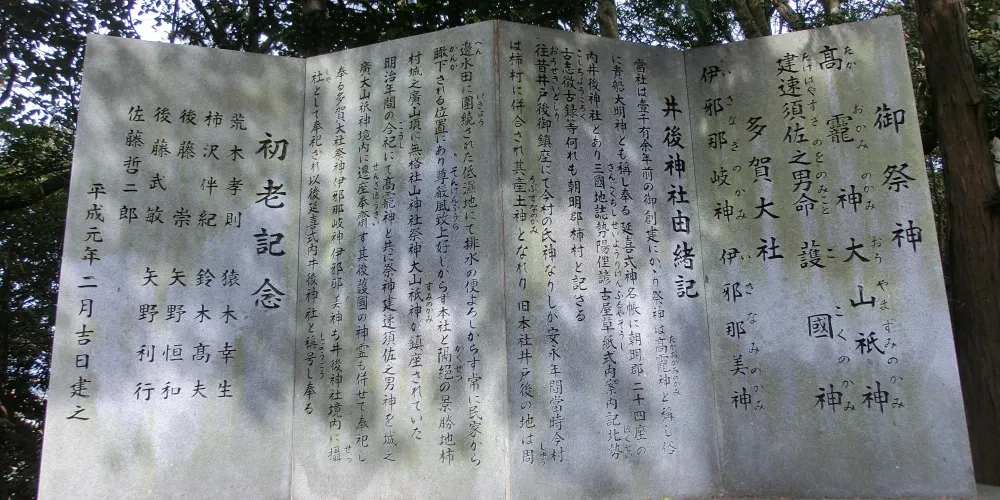 御祭神
高龗神 大山祇神
建速須佐之男命 護國神
多賀大社
伊邪那岐神 伊邪那美神
井後神社由緒記
當社は壹千有余年前の御創建にかゝり祭神は高龗神と稱し俗
に青龍大明神とも稱し奉る 延喜式神名帳に朝明郡二十四座の
内井後神社とあり三國地誌勢陽俚諺古屋草紙式内案内記北勢
古志徴古録等何れも朝明郡柿村と記さる
往昔井戸後御鎮座にて今村の氏神なりしか安永年間當時今村
は柿村に併合され其産土神となれり 旧本社井戸後の地は四
邊水田に圍繞された低濕地にて排水の便よろしからす常に民家から
瞰下される位置にあり尊厳風致上好しからす本社と隔絶の景勝地柿
村城之廣山頂に無格社山神社祭神大山祇神か鎮座されていた
明治年間の合祀にて高龗神と共に祭神建速須佐之男神を城之
廣大山祇神境内に遷座奉斎す其後護國の神霊も併せて奉祀し
奉る多賀大社祭神伊邪那岐神伊邪那美神も井後神社境内に攝
社として奉祀され以後延喜式内井後神社と稱号し奉る
初老記念
荒木孝則 猿木幸生
柿沢伴紀 鈴木髙夫
後藤崇 矢野恒和
後藤武敏 矢野利行
佐藤哲二郎
平成元年二月吉日建之